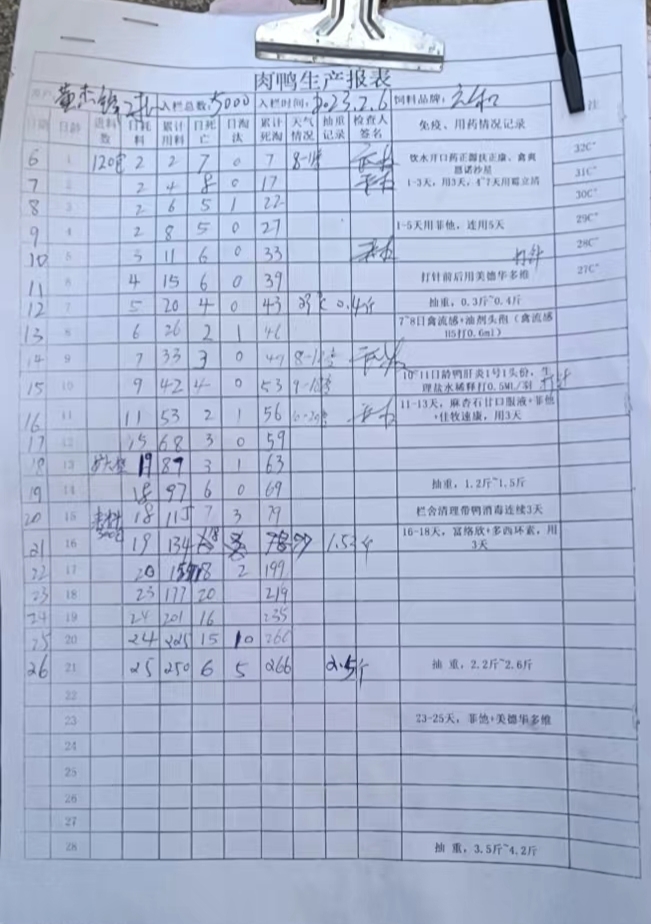 肉鸭生产报表
入栏总数: 5000 入栏时间: 2023.2.6 饲料品牌:
日期 日龄 进料数 日耗料 累计用料 日死亡 日淘汰 累计死淘 天气情况 抽重记录 检查人签名 免疫、用药情况记录 注
6 1 120包 2 2 7 0 7 饮水开口药正源扶正康、禽爽 32C°
7 2 2 4 8 0 17 1-3天,用3天, 31C°
8 3 2 6 5 1 22 30C°
9 4 2 8 5 0 27 1-5天用菲他,连用5天 29C°
10 5 3 11 6 0 33 打针 28C°
11 6 4 15 6 0 39 打针前后用美德华多维 27C°
12 7 5 20 4 0 43 0.4斤 抽重,0.3斤~0.4斤
13 8 6 26 2 1 46 7~8日禽流感+油剂头孢(禽流感H5打0.6ml)
14 9 7 33 3 0 49
15 10 9 42 4 0 53 10~11日龄鸭肝炎1号1头份,生理盐水稀释打0.5ML/羽
16 11 11 53 2 1 56 11-13天,麻杏石甘口服液+菲他+佳牧速康,用3天
17 12 15 68 3 0 59
18 13 19 87 3 1 63
19 14 18 97 6 0 69 抽重,1.2斤~1.5斤
20 15 18 115 7 3 79 栏舍清理带鸭消毒连续3天
21 16 19 134 118 1.5斤 16-18天,富络欣+多西环素,用3天
22 17 20 18 2 199
23 18 23 177 20 219
24 19 24 201 16 235
25 20 24 225 15 10 260
26 21 25 250 6 5 266 2.5斤 抽重,2.2斤~2.6斤
22
23 23-25天,菲他+美德华多维
24
25
26
27
28 抽重,3.5斤~4.2斤